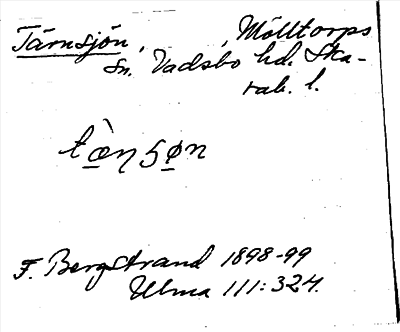 Tärnsjön, Mölltorps
sn. Vadsbo hd. Ska-
rab. l.
tæ̀ŋʂøn
F. Bergstrand 1898-99
Ulma 111:324.